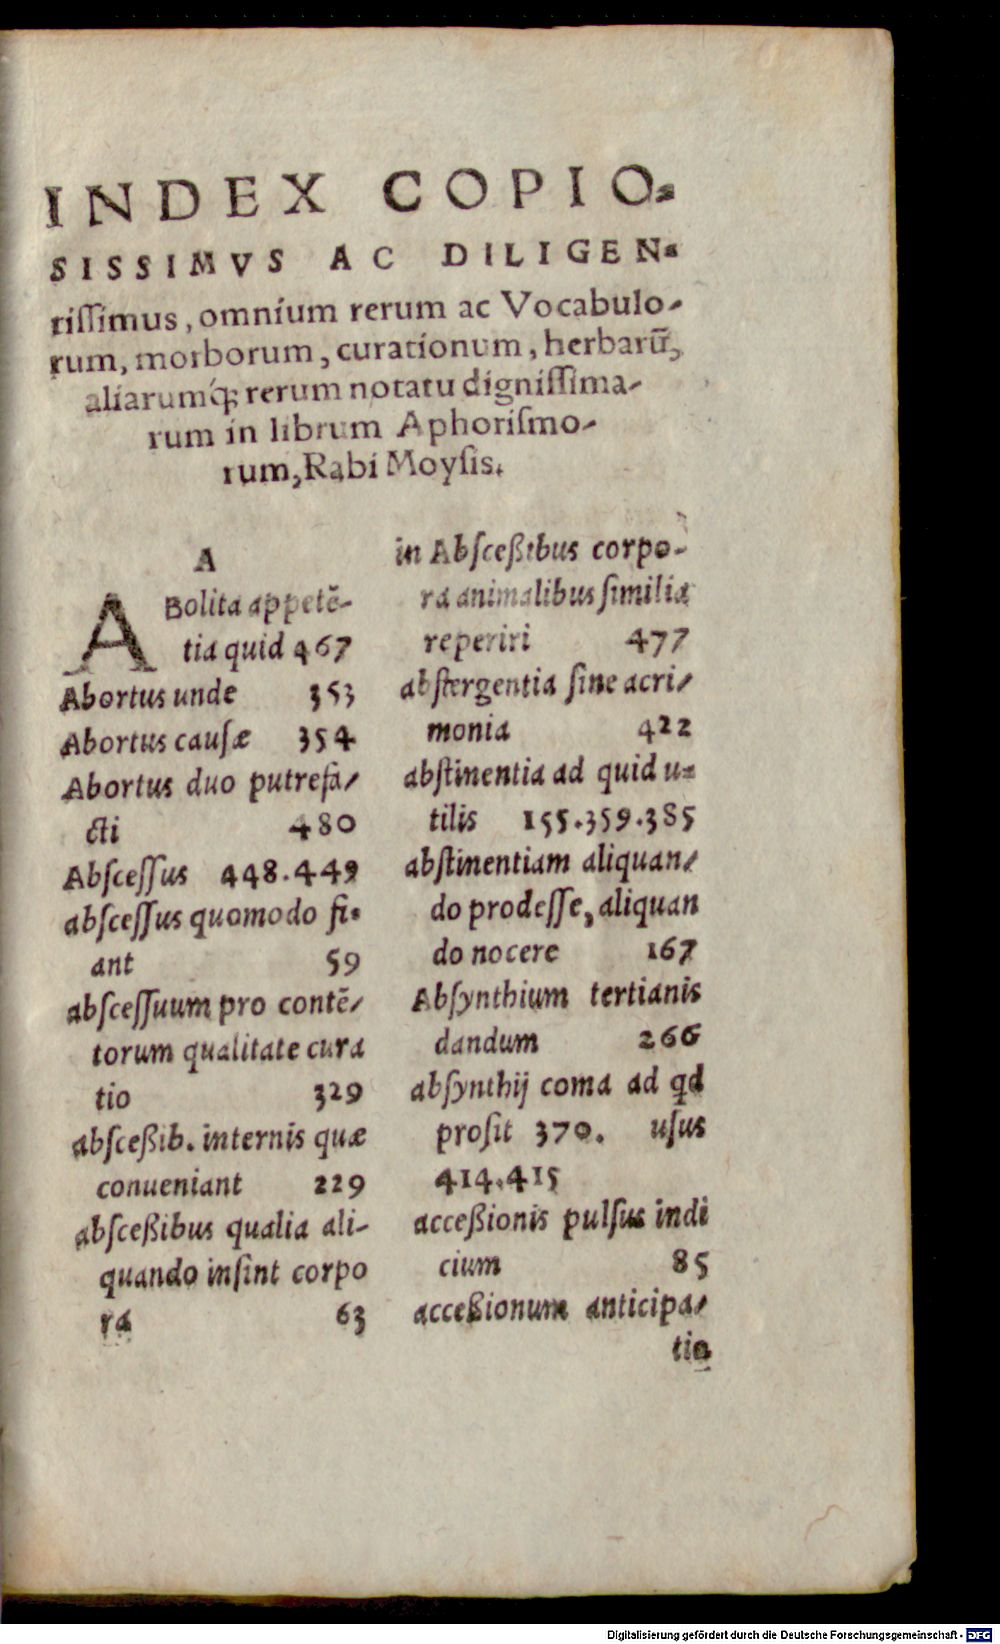 INDEX COPIO-
SISSIMVS AC DILIGEN-
tiſſimus, omnium rerum ac Vocabulo-
rum, morborum, curationum, herbarū,
aliarumq́; rerum notatu digniſſima-
rum in librum Aphoriſmo-
rum, Rabi Moyſis.
A
ABolita appetē-
tia quid 467
Abortus unde 353
Abortus cauſæ 354
Abortus duo putrefa-
cti 480
Abſceſſus 448.449
abſceſſus quomodo fi-
ant 59
abſceſſuum pro contē-
torum qualitate cura
tio 329
abſceßib. internis quæ
conueniant 229
abſceßibus qualia ali-
quando inſint corpo
ra 63
in Abſceßibus corpo-
ra animalibus ſimilia
reperiri 477
abſtergentia ſine acri-
monia 422
abſtinentia ad quid u-
tilis 155.359.385
abſtinentiam aliquan-
do prodeſſe, aliquan
do nocere 167
Abſynthium tertianis
dandum 266
abſynthij coma ad qd
proſit 370. uſus
414.415
acceßionis pulſus indi
cium 85
acceßionum anticipa-
tio
Digitalisierung gefördert durch die Deutsche Forschungsgemeinschaft - DFG